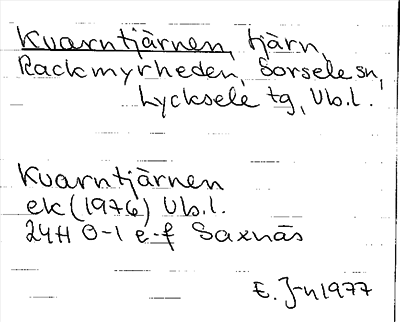 Kvarntjärnen, tjärn,
Rackmyrheden, Sorsele sn,
Lycksele tg, Vb.l.
Kvarntjärnen
ek (1976) Vb.l.
24H 0-1 e-f Saxnäs
E. J-n 1977